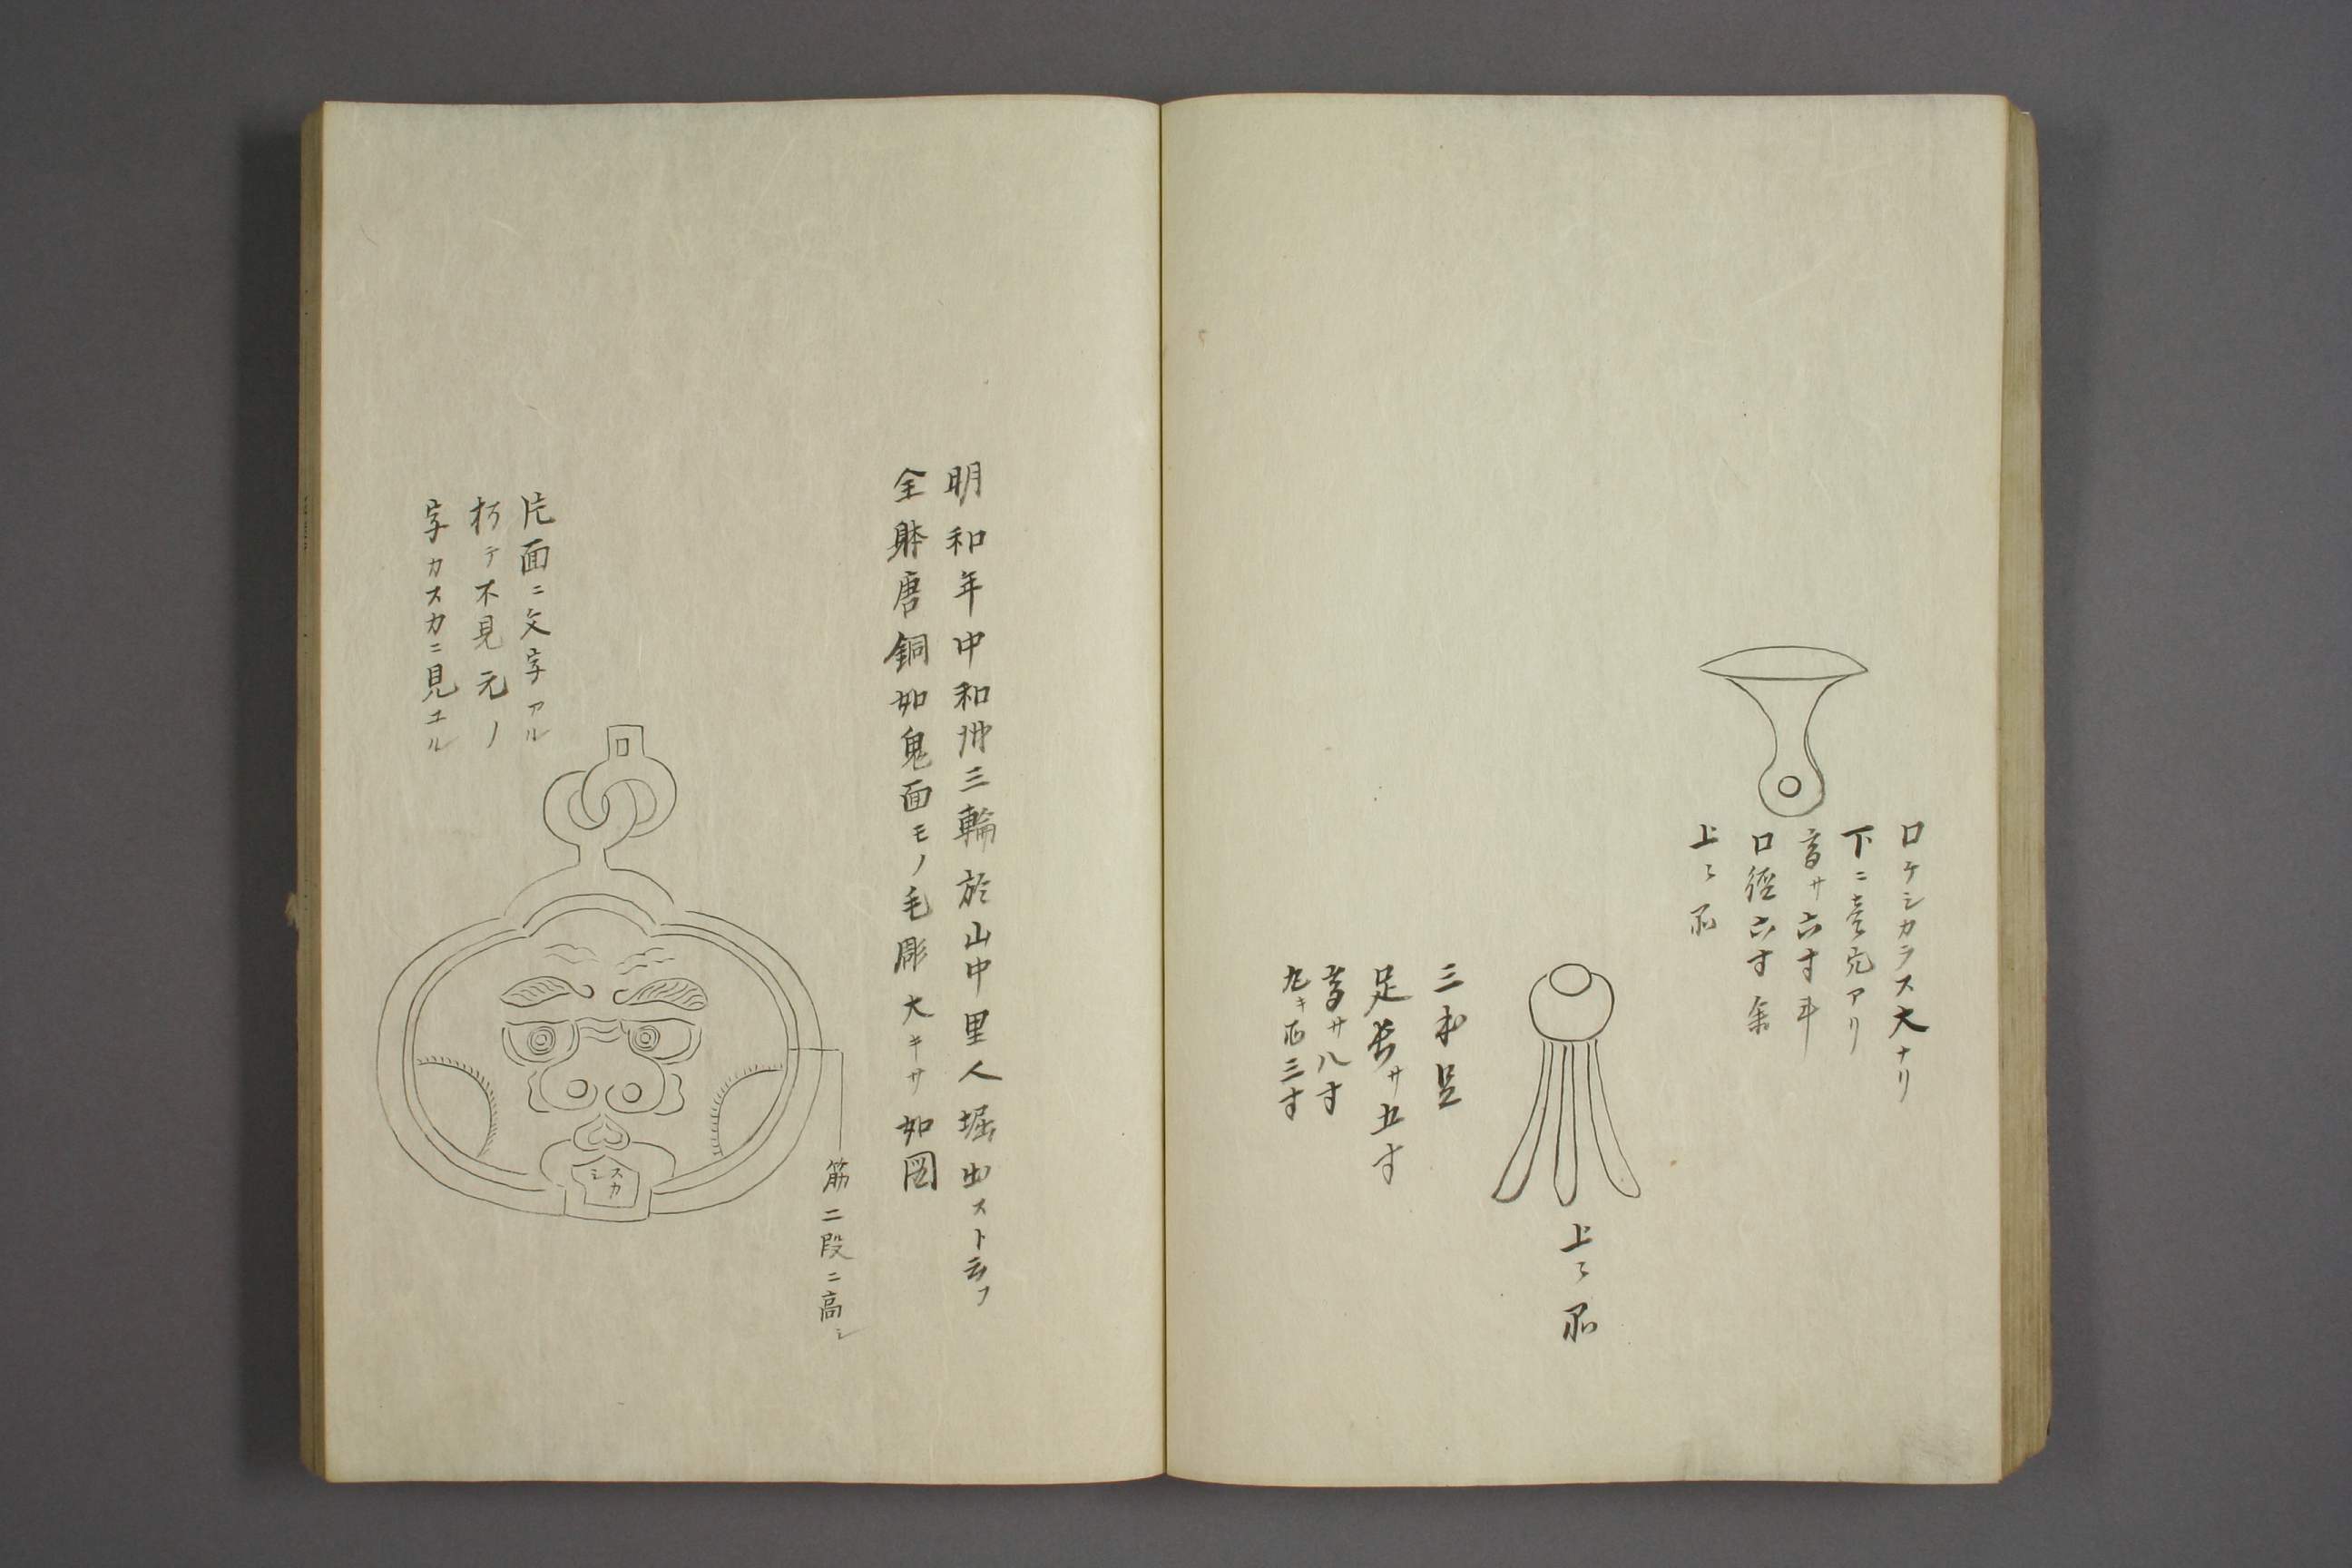 口ケシカラス大ナリ
下ニ壱穴アリ
高サ六寸斗
口径六寸余
上ニ同
上ニ同
三本足
足長サ五寸
高サ八寸
丸キ所三寸
明和年中和州三輪於山中里人堀出スト云フ
全躰唐銅如鬼面モノ毛彫大キサ如図
筋二段ニ高シ
片面ニ文字アル
朽テ不見元ノ
字カスカニ見ユル
スカシ